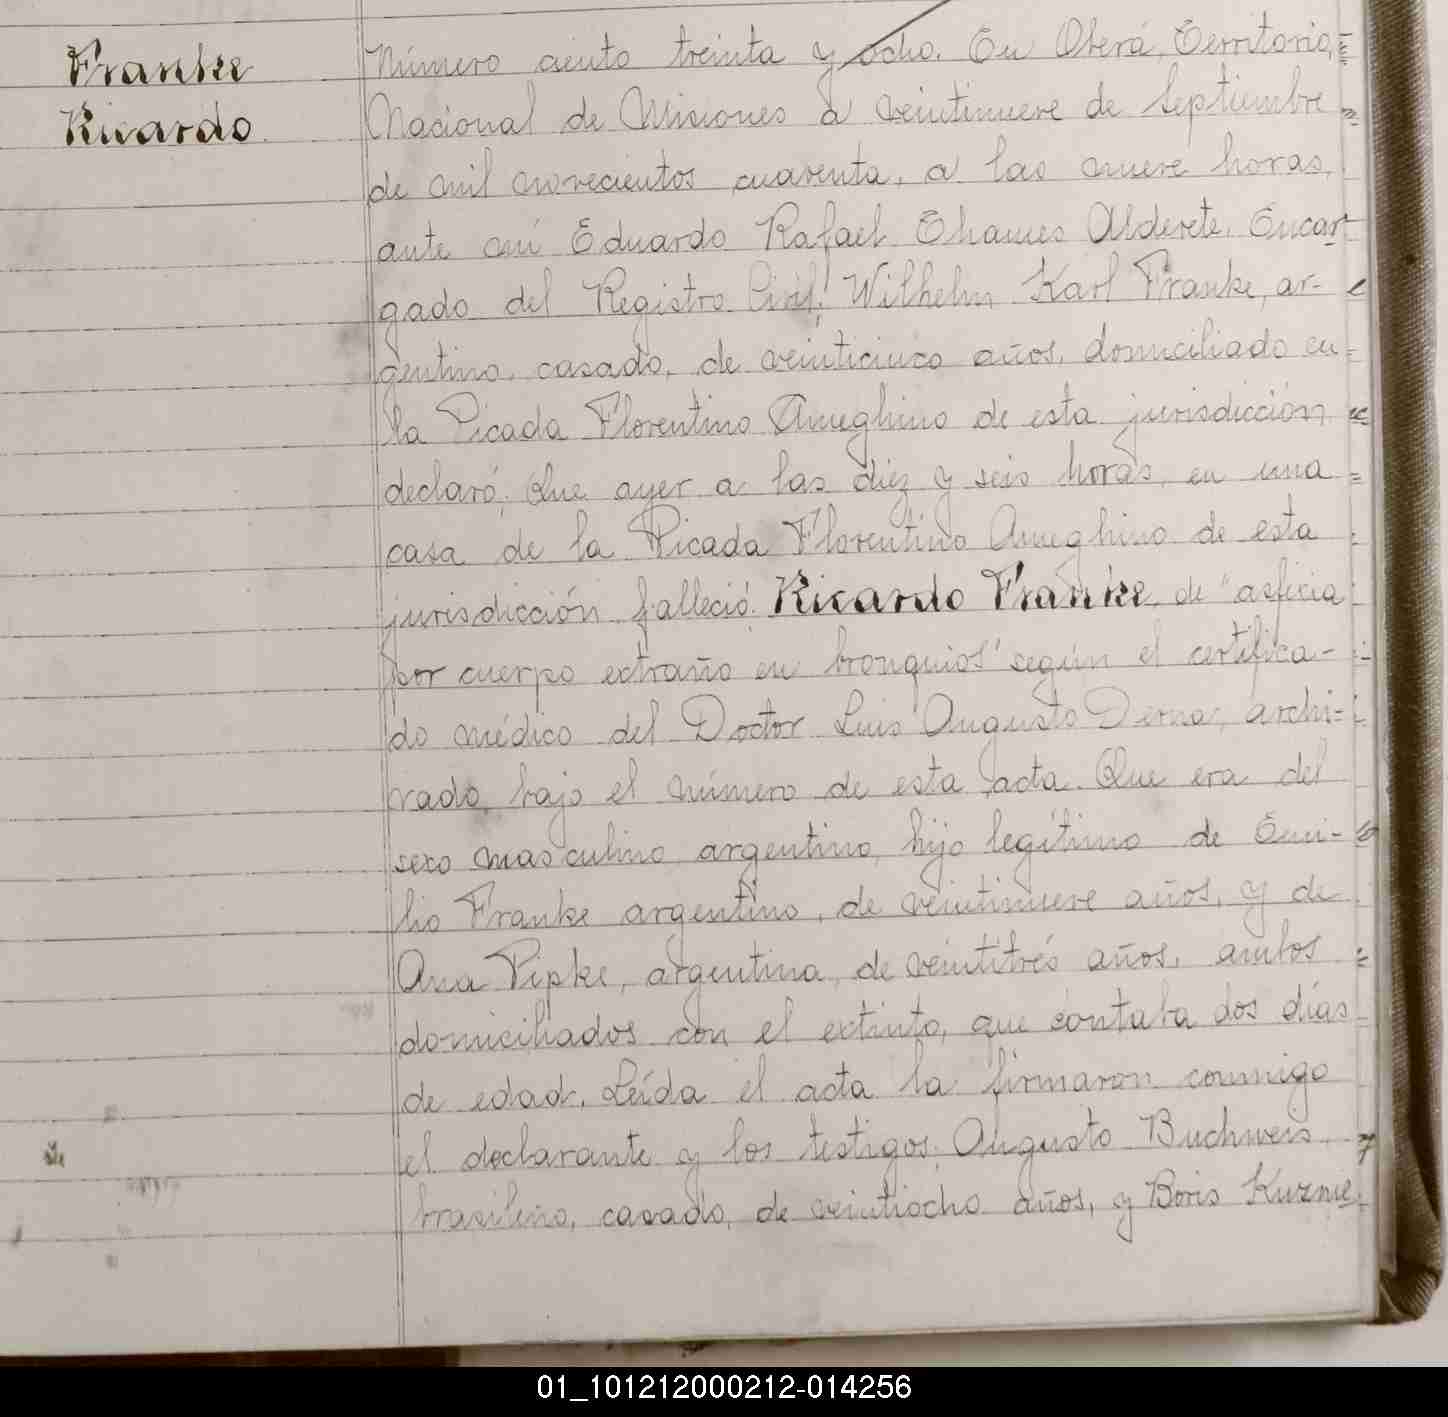 Franke
Ricardo.
Número ciento treinta y ocho. En Oberá, Territorio
Nacional de Misiones a veintinueve de Septiembre
de mil novecientos cuarenta, a las nueve horas,
ante mí Eduardo Rafael Thames Alderete, Encar-
gado del Registro Civil, Wilhelm Karl Franke, ar-
gentino, casado, de veinticinco años, domiciliado en
la Picada Florentino Ameghino de esta jurisdicción
declaró: Que ayer a las diez y seis horas, en una
casa de la Picada Florentino Ameghino de esta
jurisdicción falleció Ricardo Franke, de "asficia
por cuerpo extraño en bronquios" según el certifica-
do médico del Doctor Luis Augusto Derna, archi-
vado bajo el número de esta acta. Que era del
sexo masculino, argentino, hijo legítimo de Emi-
lio Franke argentino, de veintinueve años, y de
Ana Pipke, argentina, de veintitrés años, ambos
domiciliados con el extinto, que contaba dos días
de edad. Leída el acta la firmaron conmigo
el declarante y los testigos: Augusto Buchweis
brasileño, casado, de veintiocho años, y Boris Kuzme
01_101212000212-014256